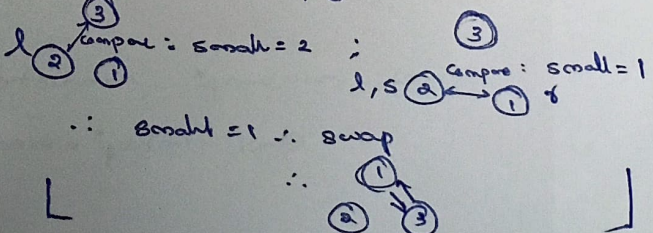 3
l 2 compare : small = 2 ; 3
1 l, s 2 compare : small = 1
1 r
∴ small = 1 ∴ swap
∴ 1
2 3